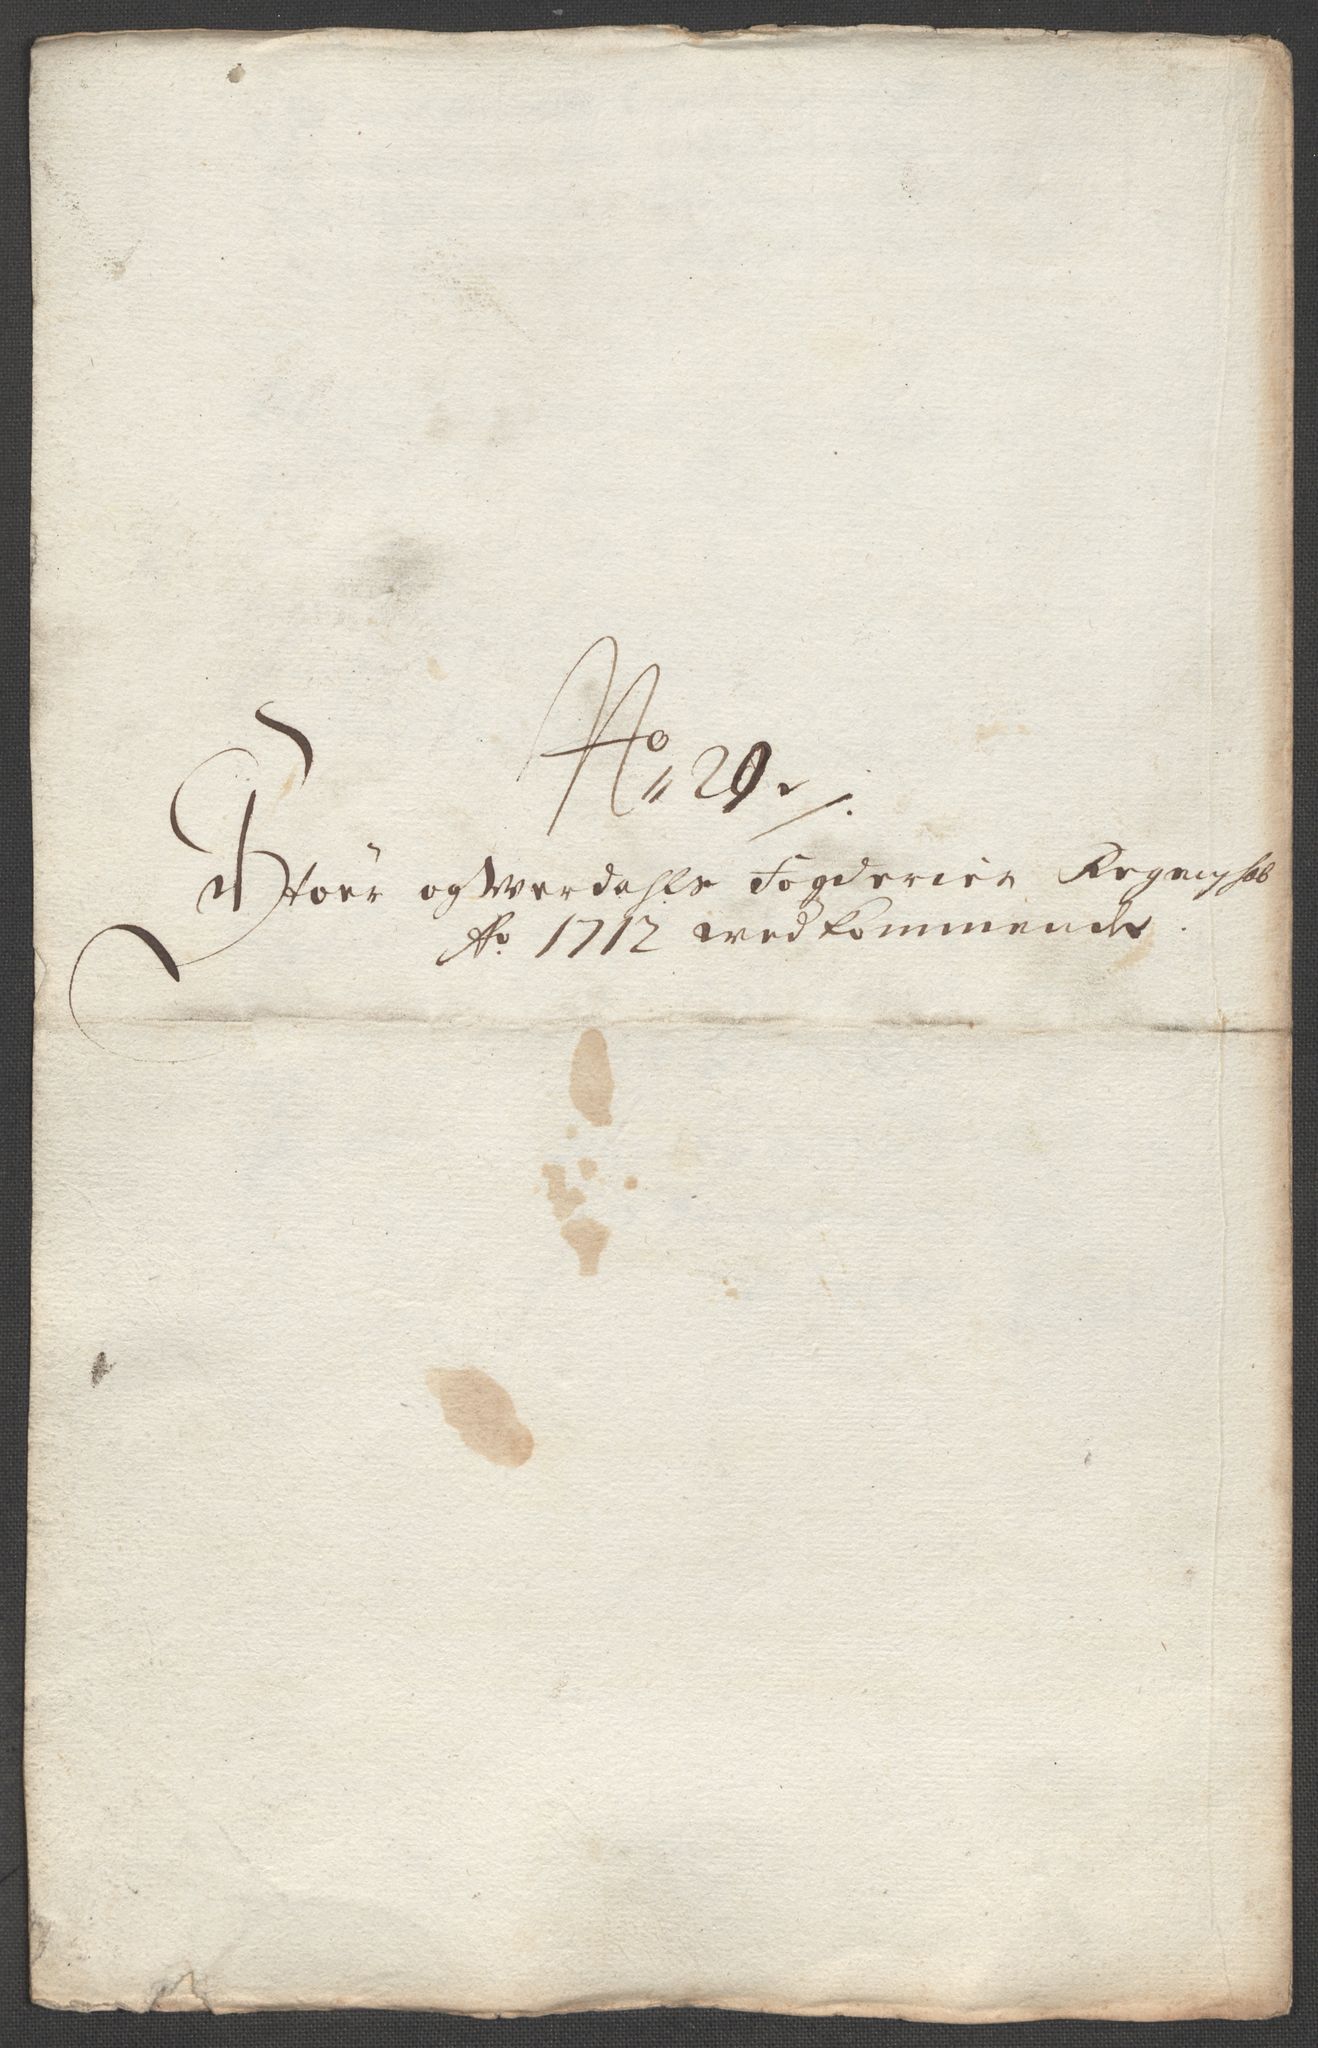 No 29
Stør og Werdahls Fogderier Regenschab
Ao 1712 wedkommende.